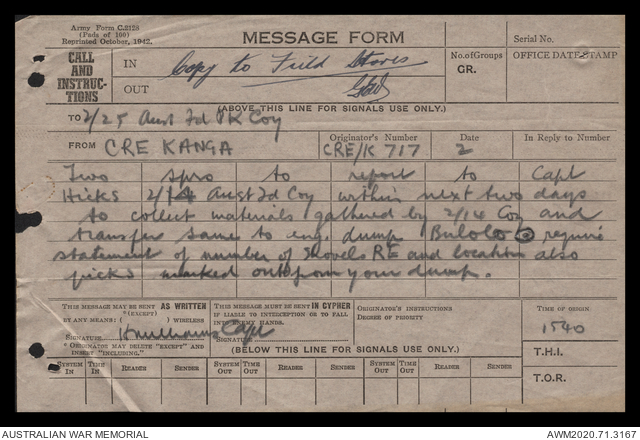 Army Form C.2128
(Pads of 100)
Reprinted October, 1942.
MESSAGE FORM
Serial No.
CALL
AND
INSTRUC-
TIONS
IN
OUT
Copy to Field Stores
No. of Groups
GR.
OFFICE DATE STAMP
(ABOVE THIS LINE FOR SIGNALS USE ONLY.)
TO 2/25 Aust Fd PK Coy
FROM CRE KANGA
Originator's Number
CRE/K 717
Date
2
In Reply to Number
Two spro to report to Capt
Hicks 2/14 Aust Fd Coy within next two days
to collect materials gathered by 2/14 Coy and
transfer same to eng. dump Bulolo require
statement of number of shovels RE and location also
picks marked out from your dump.
THIS MESSAGE MAY BE SENT AS WRITTEN
(EXCEPT)
BY ANY MEANS: ( ) WIRELESS
SIGNATURE Capt
"ORIGINATOR MAY DELETE "EXCEPT" AND
INSERT "INCLUDING."
THIS MESSAGE MUST BE SENT IN CYPHER
IF LIABLE TO INTERCEPTION OR TO FALL
INTO ENEMY HANDS.
SIGNATURE
ORIGINATOR'S INSTRUCTIONS
DEGREE OF PRIORITY
TIME OF ORIGIN
1540
(BELOW THIS LINE FOR SIGNALS USE ONLY.)
T.H.I.
T.O.R.
SYSTEM IN TIME IN READER SENDER SYSTEM OUT TIME OUT READER SENDER SYSTEM OUT TIME OUT READER SENDER
AUSTRALIAN WAR MEMORIAL
AWM2020.71.3167